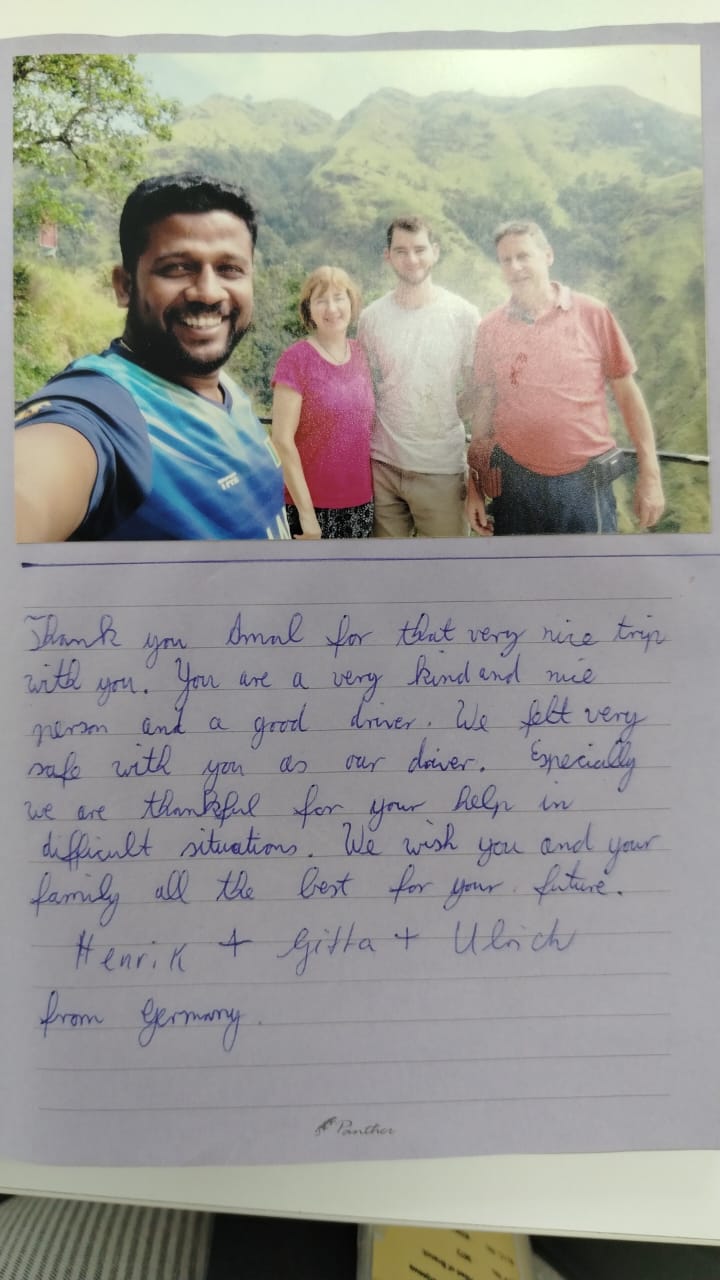 Thank you Amal for that very nice trip
with you. You are a very kind and nice
person and a good driver. We felt very
safe with you as our driver. Especially
we are thankful for your help in
difficult situations. We wish you and your
family all the best for your future.
Henrik + Gitta + Ulrich
from Germany.
Panther